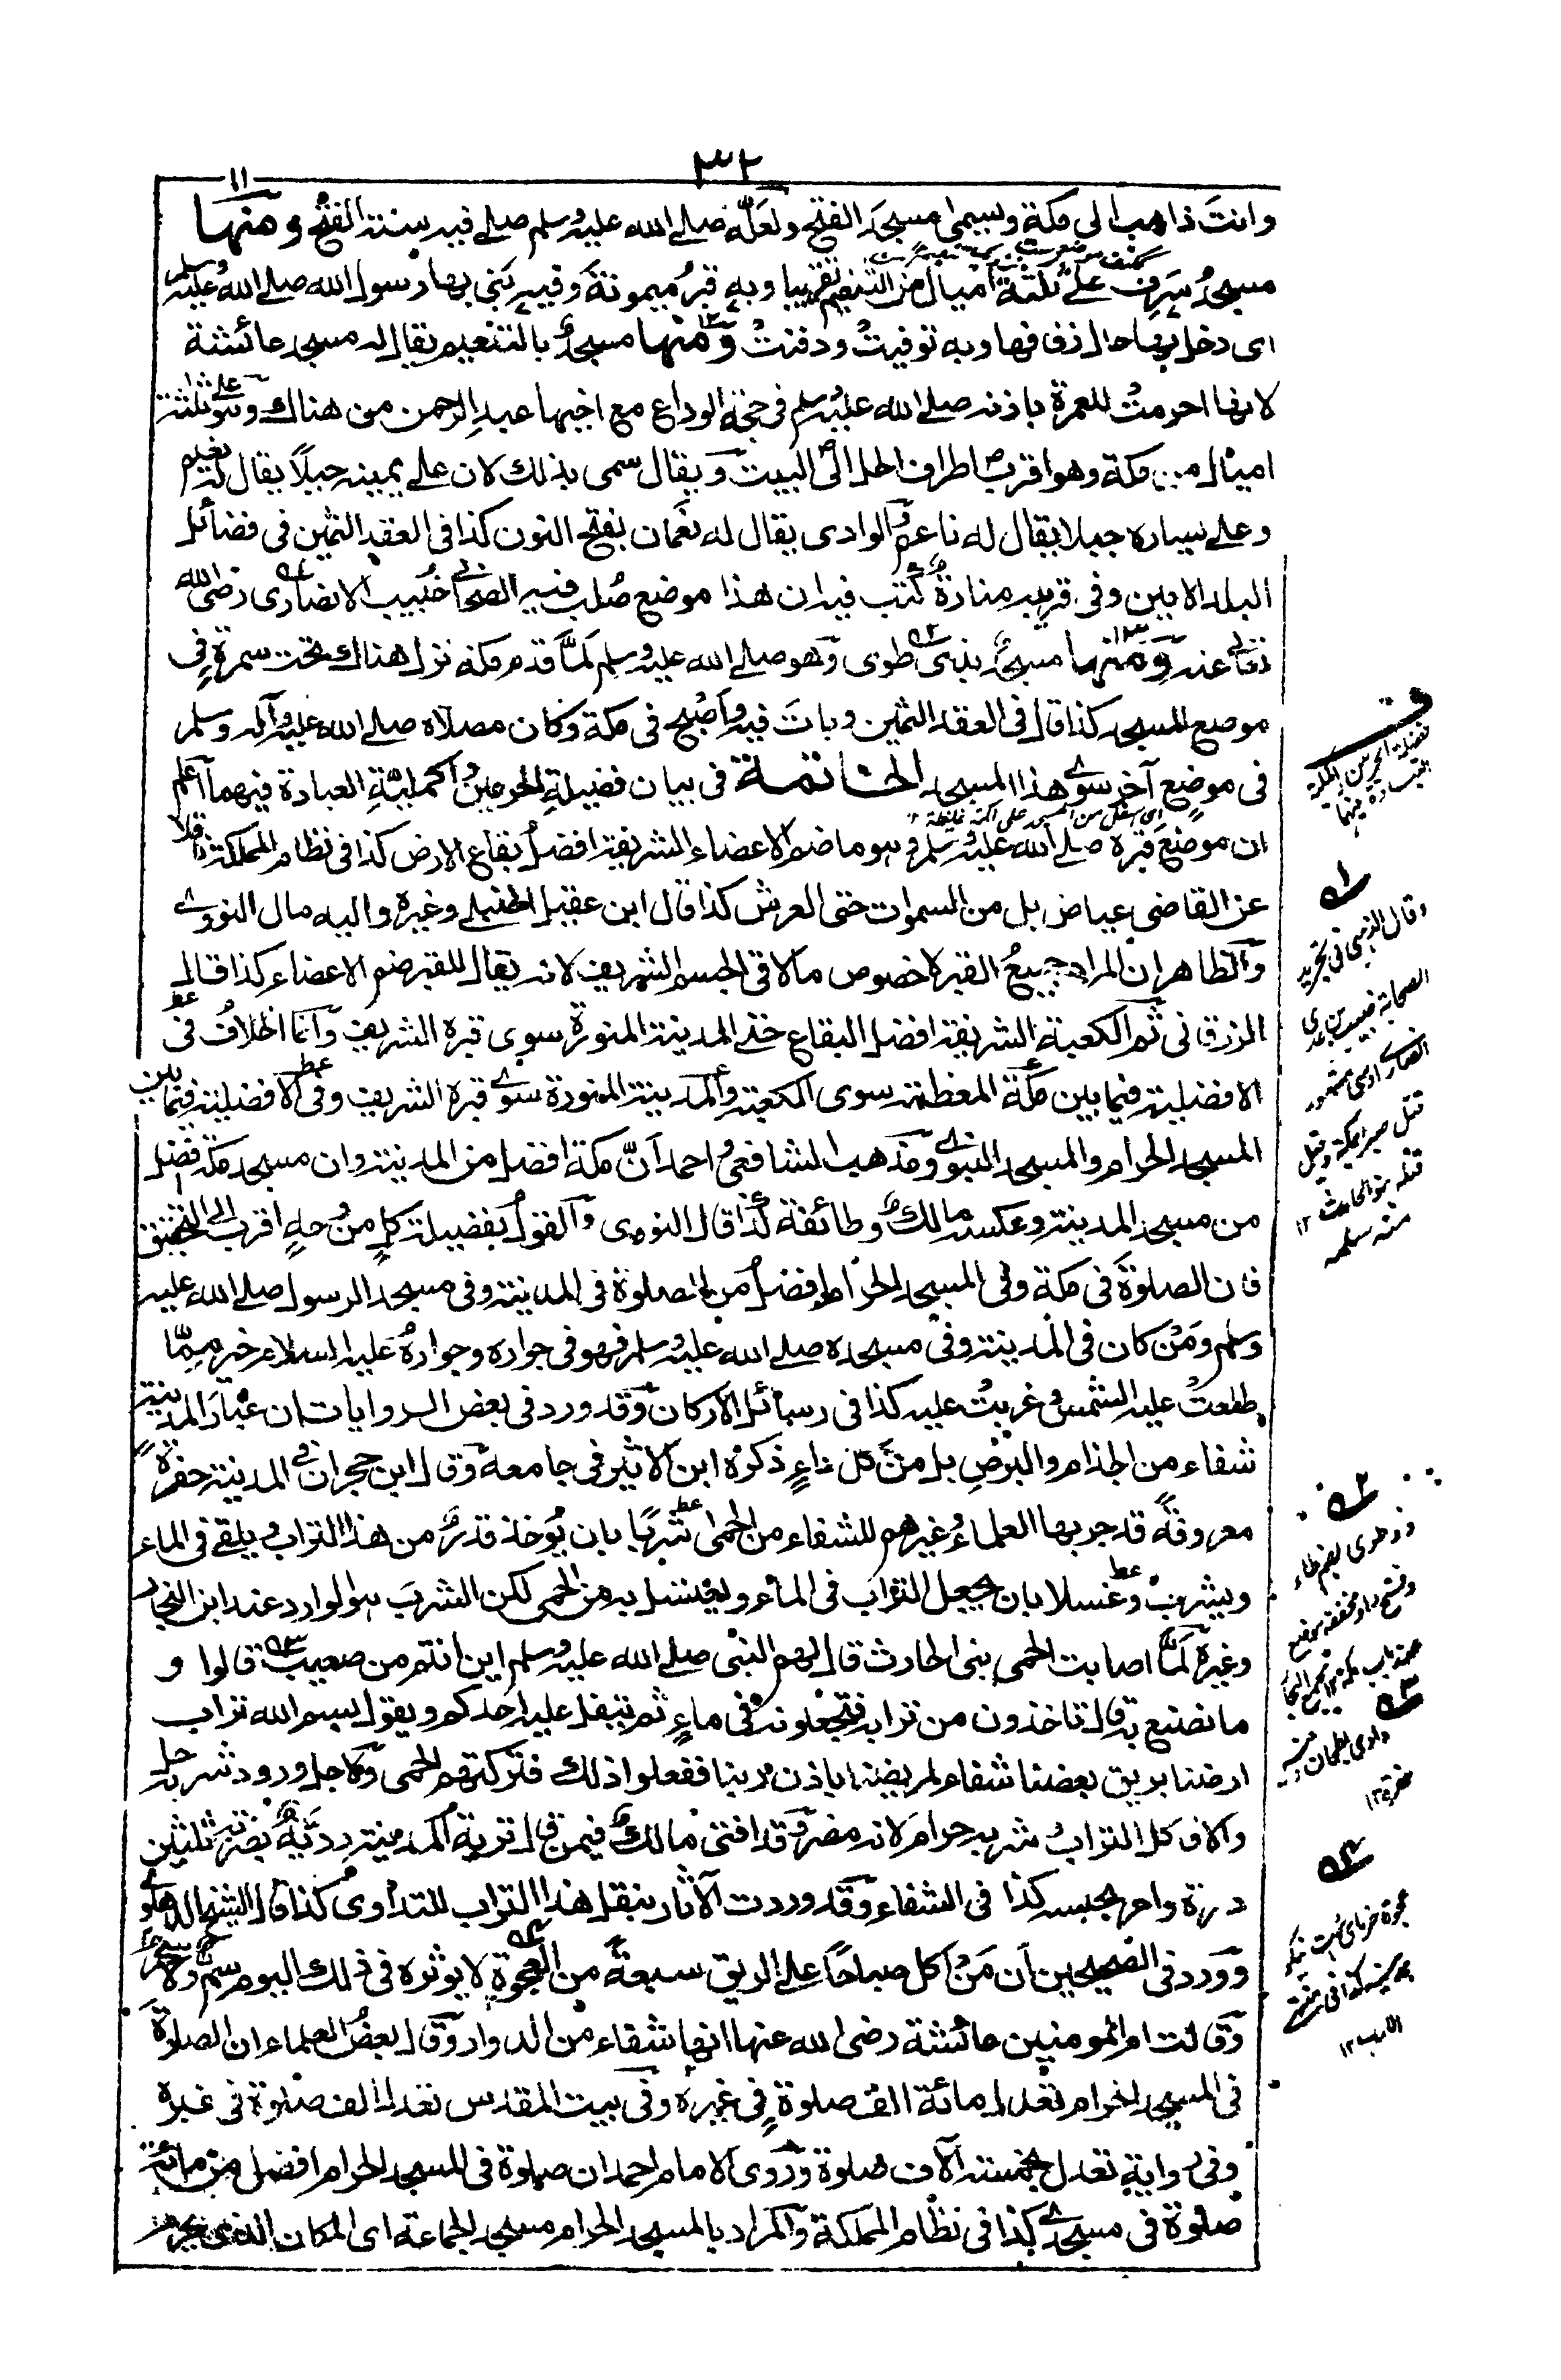 ٣٢
١١
وانت ذاهب الى مكة ويسمى مسجد الفتح ولعله صلے الله عليه وسلم صلے فيه سنة الفتح ومنها
مسجد سرف علے ثلثة اميال من التنعيم تقريبا وبه قبر ميمونة وفيه بنى بها رسول الله صلے الله عليه وسلم
اى دخل بها حال زفافها وبه توفيت ودفنت ومنها مسجد بالتنعيم يقال له مسجد عائشة
لانها احرمت للعمرة باذنه صلے الله عليه وسلم فى حجة الوداع مع اخيها عبد الرحمن من هناك وهو على ثلثة
اميال من مكة وهو اقرب اطراف الحل الى البيت ويقال سمى بذلك لان علے يمينه جبلاً يقال له نعيم
وعلے يساره جبلا يقال له ناعم والوادى يقال له نعمان بفتح النون كذا فى العقد الثمين فى فضائل
البلد الامين وفى قربه منارة كتب فيه ان هذا موضع صلب فيه الصحابى خبيب الانصارى رضى الله
تعالى عنه ومنها مسجد بذى طوى وهو صلے الله عليه وسلم لمّا قدم مكة نزل هناك تحت سمرة فى
موضع المسجد كذا قال فى العقد الثمين وبات فيه واصبح فى مكة وكان مصلاه صلے الله عليه وآله وسلم
فى موضع آخر سوى هذا المسجد الخاتمة فى بيان فضيلة الحرمين واكملية العبادة فيهما اعلم
اى اسفل من المسجد على اكمة غليظة
ان موضع قبره صلے الله عليه وسلم وهو ما ضم الاعضاء الشريفة افضل بقاع الارض كذا فى نظام المملكة ناقلا
عن القاضى عياض بل من السموات حتى العرش كذا قال ابن عقيل الحنبلے وغيره واليه مال النووى
والظاهر ان المراد جميع القبر لا خصوص ما لاقى الجسم الشريف لانه يقال للقبر ضم الاعضاء كذا قال
الزرقانى ثم الكعبة الشريفة افضل البقاع حتى المدينة المنورة سوى قبره الشريف وانما الخلاف فى
الافضلية فيما بين مكة المعظمة سوى الكعبة والمدينة المنورة سوى قبره الشريف وفى الافضلية فيما بين
المسجد الحرام والمسجد النبوى ومذهب الشافعى واحمد انّ مكة افضل من المدينة وان مسجد مكة افضل
من مسجد المدينة وعكسه مالك وطائفة كذا قال النووى والقول بفضيلة كل من وجه اقرب الى التحقيق
فان الصلوة فى مكة وفى المسجد الحرام افضل من الصلوة فى المدينة وفى مسجد الرسول صلے الله عليه
وسلم ومن كان فى المدينة وفى مسجده صلے الله عليه وسلم فهو فى جواره وجواره عليه السلام خير ممّا
طلعت عليه الشمس وغربت عليه كذا فى رسائل الاركان وقد ورد فى بعض الروايات ان غبار المدينة
شفاء من الجذام والبرص بل من كل داء ذكره ابن الاثير فى جامعه وقال ابن حجر ان فى المدينة حفرة
معروفة قد جربها العلماء وغيرهم للشفاء من الحمى شربًا بان يوخذ قدر من هذا التراب ويلقے فى الماء
ويشرب وغسلا بان يجعل التراب فى الماء ويغتسل به من الحمى لكن الشرب هو الوارد عند ابن النجار
وغيره لمّا اصابت الحمى بنى الحارث قال لهم النبى صلے الله عليه وسلم اين انتم من صعيب قالوا و
ما نصنع به قال تاخذون من ترابه فتجعلونه فى ماء ثم يتفل عليه احدكم ويقول بسم الله تراب
ارضنا بريق بعضنا شفاء لمريضنا باذن ربنا ففعلوا ذلك فتركتهم الحمى ولاجل ورود شربه حل
والا فاكل التراب وشربه حرام لانه مضر وقد افتى مالك فيمن قال تربة المدينة رديّة يضرب ثلثين
درة وامر بحبسه كذا فى الشفاء وقد وردت الآثار بنقل هذا التراب للتداوى كذا قال الشيخ الدهلوى
وورد فى الصحيحين ان من اكل صباحًا علے الريق سبعة من العجوة لا يوثره فى ذلك اليوم سم ولا سحر
وقالت ام المومنين عائشة رضى الله عنها انها شفاء من الدوار وقال بعض العلماء ان الصلوة
فى المسجد الحرام تعدل مائة الف صلوة فى غيره وفى بيت المقدس تعدل الف صلوة فى غيره
وفى رواية تعدل بخمسة آلاف صلوة وروى الامام احمد ان صلوة فى المسجد الحرام افضل من مائة
صلوة فى مسجدى كذا فى نظام المملكة والمراد بالمسجد الحرام مسجد الجماعة اى المكان الذى يحرم
ف
فضيلة الحرمين واكملية
العبادة فيهما
١ه
وقال الذهبى فى تجريد
الصحابة خبيب بن عدى
الانصارى اوسى مشهور
قتل صبرا بمكة وقيل
قتله بنو الحارث ١٢
منه سلمه
٢ه
وذ طوى بضم طاء
وفتح واو مخففة موضع
عند باب مكة ١٢ مجمع البحار
٣ه
وادى بطحان
٤ه